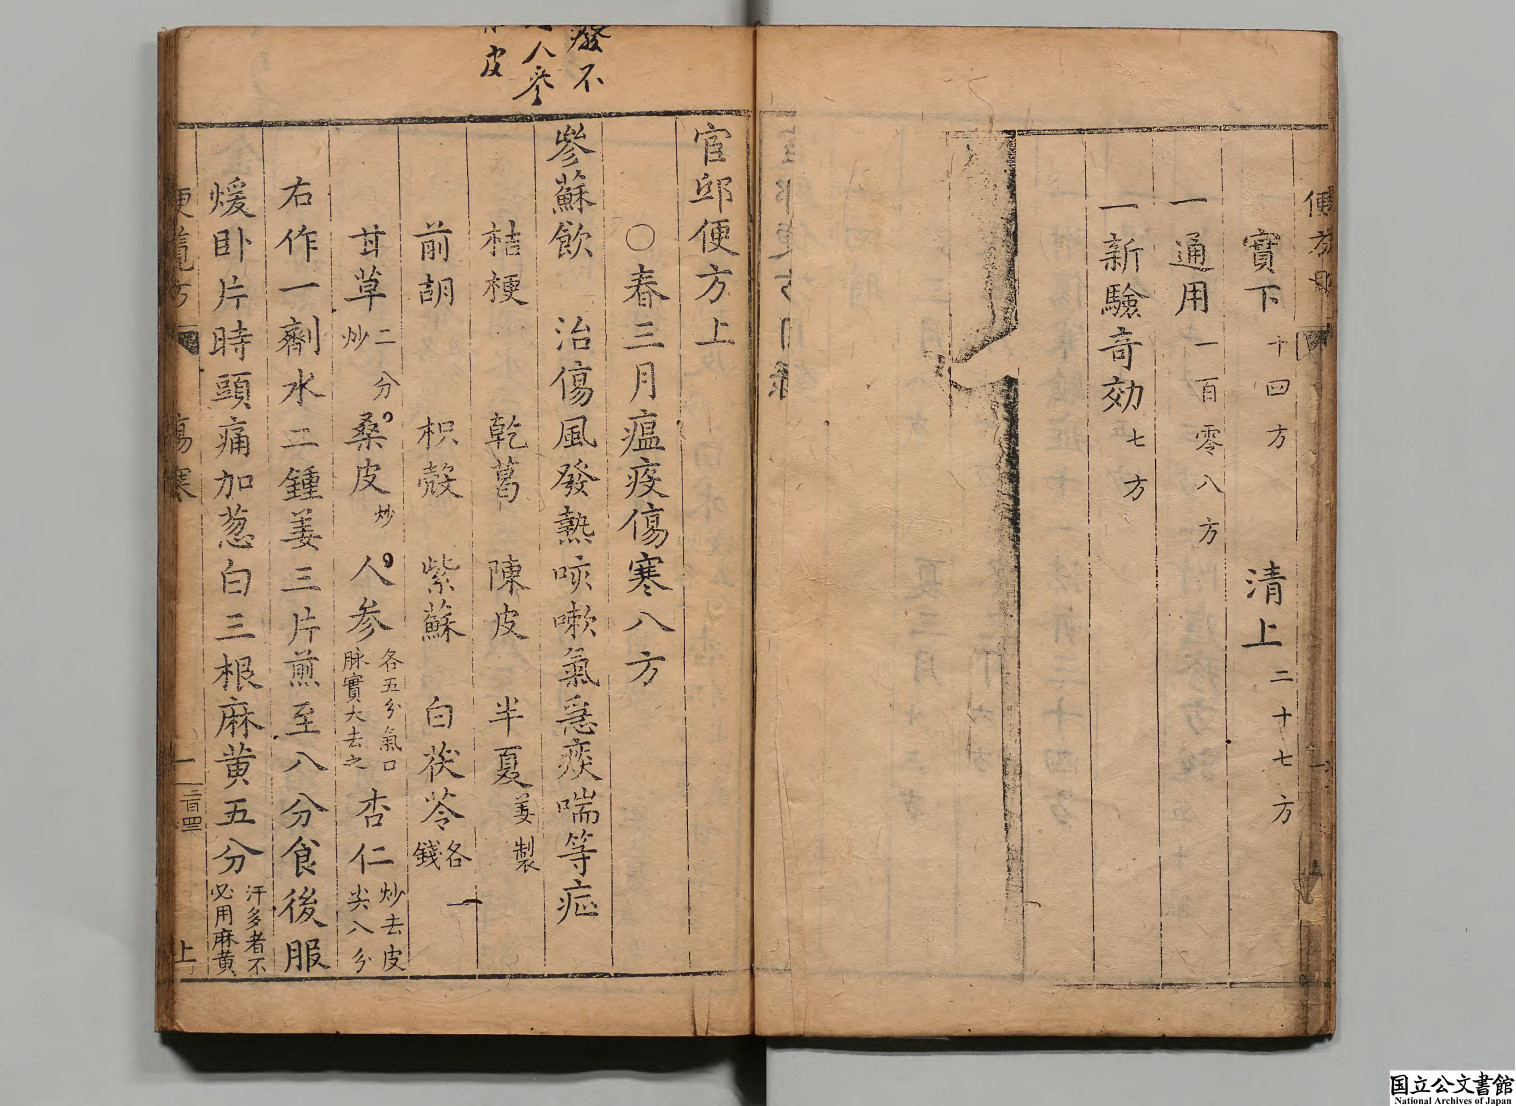 便方目
實下十四方 清上二十七方
一通用一百零八方
一新驗奇効七方
官邸便方上
○春三月瘟疫傷寒八方
參蘇飲 治傷風發熱咳嗽氣急痰喘等症
桔梗 乾葛 陳皮 半夏姜製
前胡 枳殼 紫蘇 白茯苓各一錢
甘草二分炒 桑皮炒 人参各五分氣口脉實大去之 杏仁炒去皮尖八分
右作一劑水二鍾姜三片煎至八分食後服
煖卧片時頭痛加葱白三根麻黄五分汗多者不必用麻黄
便覽方 傷寒 一 二百四 上
發不
人參
皮
国立公文書館
National Archives of Japan